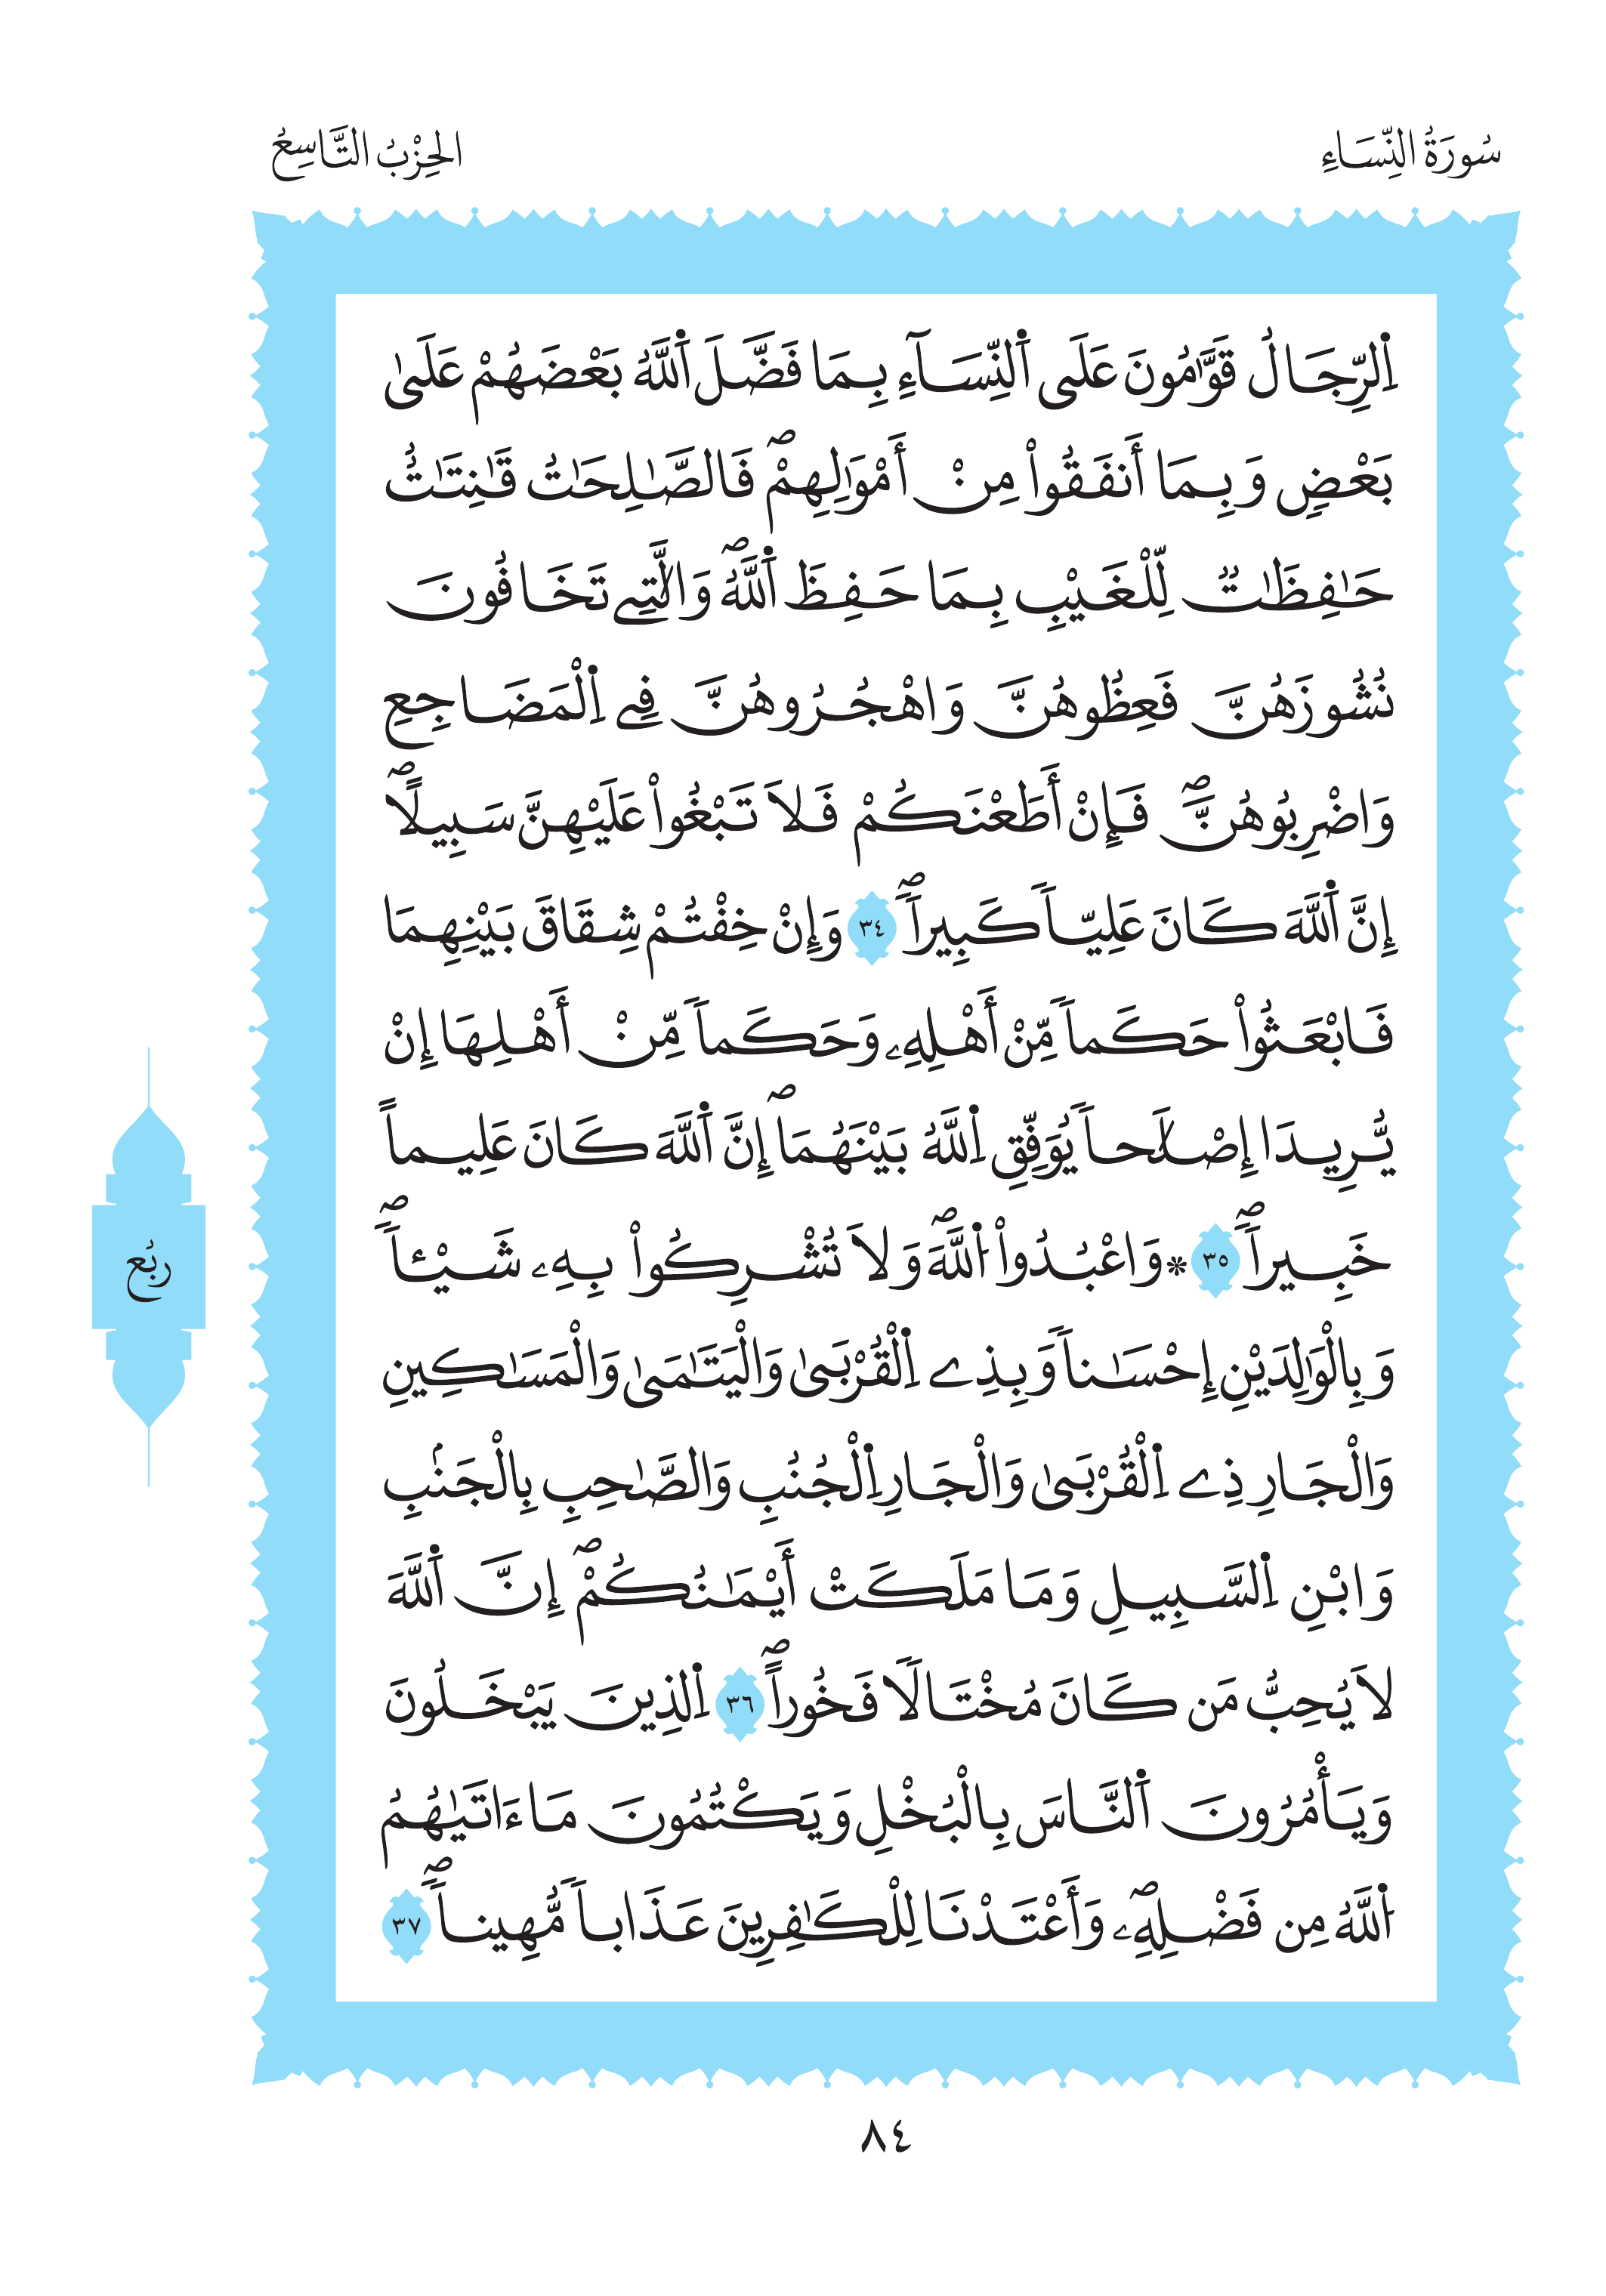 سُورَةُ النِّسَاءِ
الحِزْبُ التَّاسِعُ
اِ۬لرِّجَالُ قَوَّٰمُونَ عَلَى اَ۬لنِّسَآءِ بِمَا فَضَّلَ اَ۬للَّهُ بَعْضَهُمْ عَلَىٰ
بَعْضٖ وَبِمَا أَنفَقُواْ مِنْ أَمْوَٰلِهِمْۖ فَالصَّٰلِحَٰتُ قَٰنِتَٰتٌ
حَٰفِظَٰتٞ لِّلْغَيْبِ بِمَا حَفِظَ اَ۬للَّهُۖ وَالَّٰتِے تَخَافُونَ
نُشُوزَهُنَّ فَعِظُوهُنَّ وَاهْجُرُوهُنَّ فِے اِ۬لْمَضَاجِعِ
وَاضْرِبُوهُنَّۖ فَإِنْ أَطَعْنَكُمْ فَلَا تَبْغُواْ عَلَيْهِنَّ سَبِيلًاۖ
إِنَّ اَ۬للَّهَ كَانَ عَلِيّاٗ كَبِيراٗۖ ٣٤ وَإِنْ خِفْتُمْ شِقَاقَ بَيْنِهِمَا
فَابْعَثُواْ حَكَماٗ مِّنْ أَهْلِهِۦ وَحَكَماٗ مِّنْ أَهْلِهَا إِنْ
يُّرِيدَا إِصْلَٰحاٗ يُوَفِّقِ اِ۬للَّهُ بَيْنَهُمَاۖ إِنَّ اَ۬للَّهَ كَانَ عَلِيماً
خَبِيراٗۖ ٣٥ * وَاعْبُدُواْ اُ۬للَّهَۖ وَلَا تُشْرِكُواْ بِهِۦ شَيْـٔاٗۖ
وَبِالْوَٰلِدَيْنِ إِحْسَٰناٗ وَبِذِے اِ۬لْقُرْبَىٰ وَالْيَتَٰمَىٰ وَالْمَسَٰكِينِ
وَالْجَارِ ذِے اِ۬لْقُرْبَىٰ وَالْجَارِ اِ۬لْجُنُبِ وَالصَّٰحِبِ بِالْجَنۢبِ
وَابْنِ اِ۬لسَّبِيلِ وَمَا مَلَكَتْ أَيْمَٰنُكُمْۖ إِنَّ اَ۬للَّهَ
لَا يُحِبُّ مَن كَانَ مُخْتَالٗا فَخُوراًۖ ٣٦ اِ۬لذِينَ يَبْخَلُونَ
وَيَأْمُرُونَ اَ۬لنَّاسَ بِالْبُخْلِ وَيَكْتُمُونَ مَا ءَاتَيٰهُمُ
اُ۬للَّهُ مِن فَضْلِهِۦۖ وَأَعْتَدْنَا لِلْكَٰفِرِينَ عَذَاباٗ مُّهِيناٗۖ ٣٧
رُبُع
٨٤